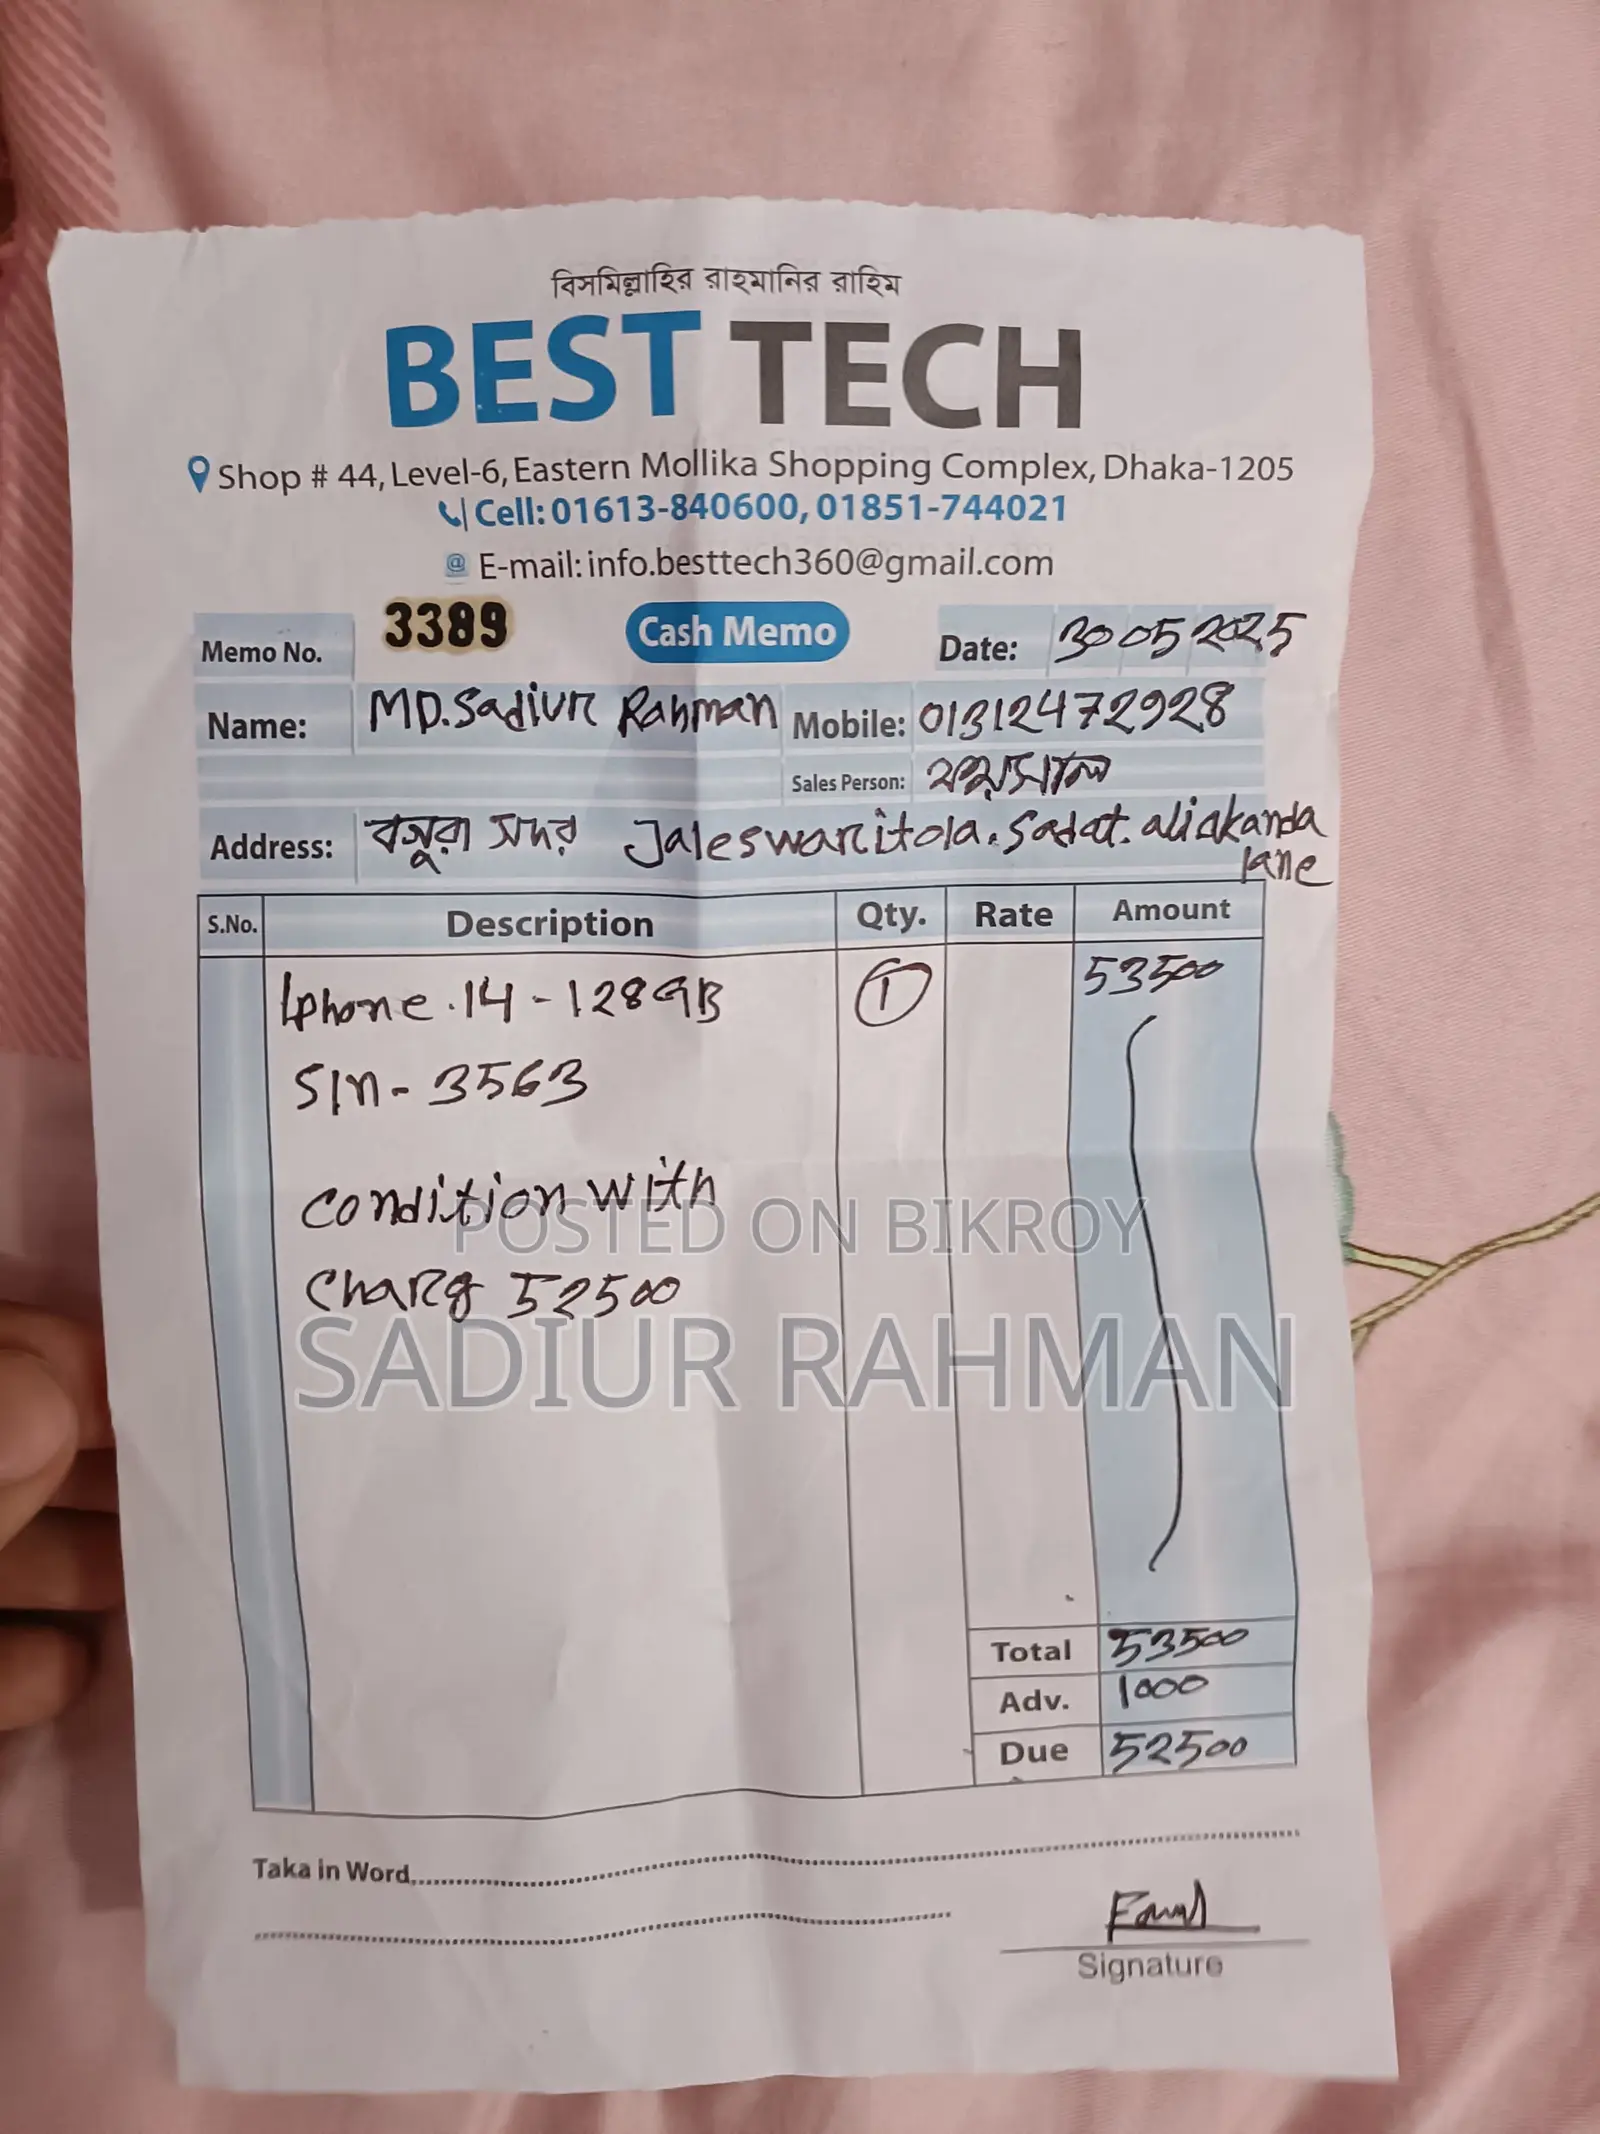 বিসমিল্লাহির রাহমানির রাহিম
BEST TECH
Shop # 44, Level-6, Eastern Mollika Shopping Complex, Dhaka-1205
Cell: 01613-840600, 01851-744021
@ E-mail: info.besttech360@gmail.com
Memo No. 3389 Cash Memo Date: 30 05 2025
Name: MD. Sadiur Rahman Mobile: 01312472928
Sales Person: ফয়সাল
Address: বগুরা সদর Jaleswaritola. Sadat. aliakanda
lane
S.No. Description Qty. Rate Amount
Iphone. 14 - 128GB 1 53500
S/n - 3563
condition with
POSTED ON BIKROY
charg 52500
SADIUR RAHMAN
Total 53500
Adv. 1000
Due 52500
Taka in Word
Signature